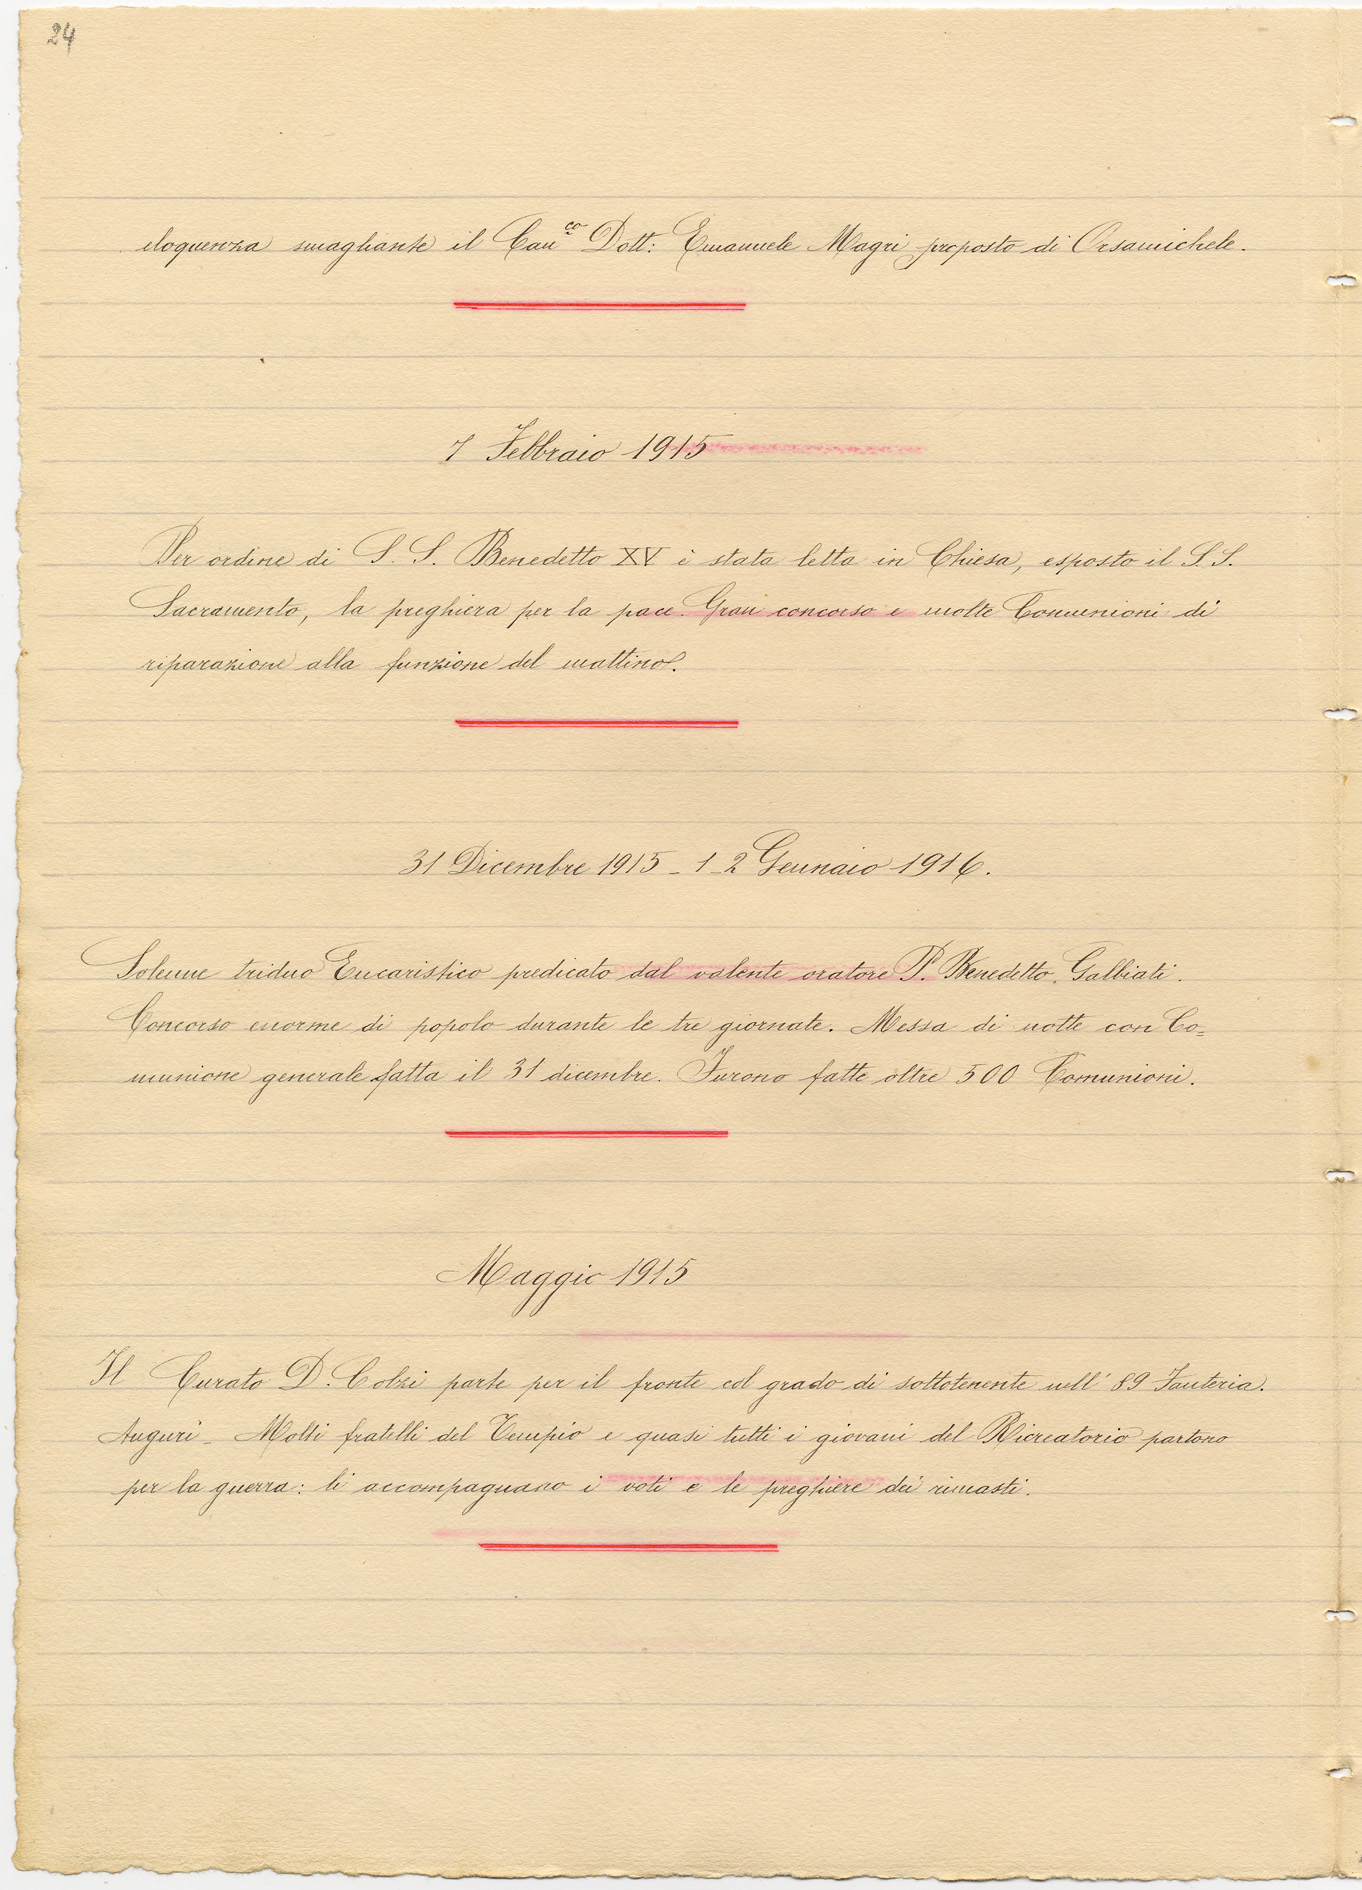 24
eloquenza smagliante il Can.co Dott: Emanuele Magri proposto di Orsamichele.
7 Febbraio 1915
Per ordine di S. S. Benedetto XV è stata letta in Chiesa, esposto il S.S.
Sacramento, la preghiera per la pace. Gran concorso e molte Comunioni di
riparazione alla funzione del mattino.
31 Dicembre 1915 - 1 - 2 Gennaio 1916.
Solenne triduo Eucaristico predicato dal valente oratore P. Benedetto Galbiati.
Concorso enorme di popolo durante le tre giornate. Messa di notte con Co=
munione generale fatta il 31 dicembre. Furono fatte oltre 500 Comunioni.
Maggio 1915
Il Curato D. Colzi parte per il fronte col grado di sottotenente nell' 89 Fanteria.
Auguri - Molti fratelli del Tempio e quasi tutti i giovani del Ricreatorio partono
per la guerra: li accompagnano i voti e le preghiere dei rimasti.